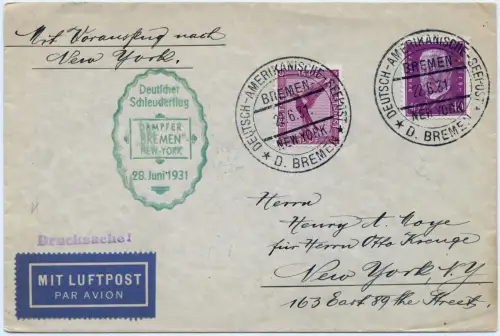 Mit Vorausflug nach
New York.
Deutscher
Schleuderflug
DAMPFER
"BREMEN"
NEW-YORK
28. Juni 1931
DEUTSCH-AMERIKANISCHE SEEPOST
BREMEN-
22.6.31
NEW YORK
* D. BREMEN *
DEUTSCH-AMERIKANISCHE SEEPOST
BREMEN-
22.6.31
NEW YORK
* D. BREMEN *
Herrn
Henry A. Moye
für Herrn Otto Kruge
New York, N.Y
163 East 89 the Street.
Drucksache!
MIT LUFTPOST
PAR AVION